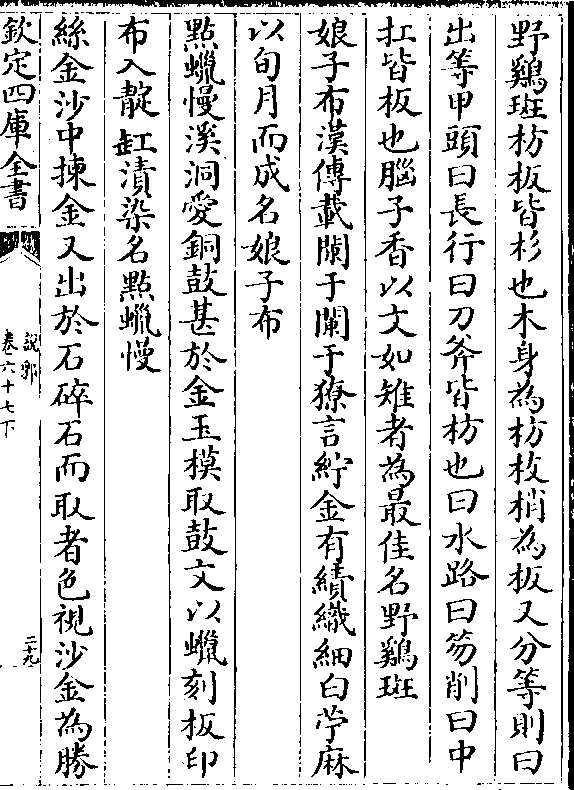 野鷄斑枋板皆杉也木身為枋枝梢為板又分等則曰
出等甲頭曰長行曰刀斧皆枋也曰水路曰笏削曰中
扛皆板也腦子香以文如雉者為最佳名野鷄斑
娘子布漢傳載闌干闌干獠言紵金有績織細白苧麻
以旬月而成名娘子布
點蠟慢溪洞愛銅鼓甚於金玉模取鼓文以蠟刻板印
布入靛缸漬染名點蠟慢
絲金沙中揀金又出於石碎石而取者色視沙金為勝
欽定四庫全書
說郛
卷六十七下
二十九